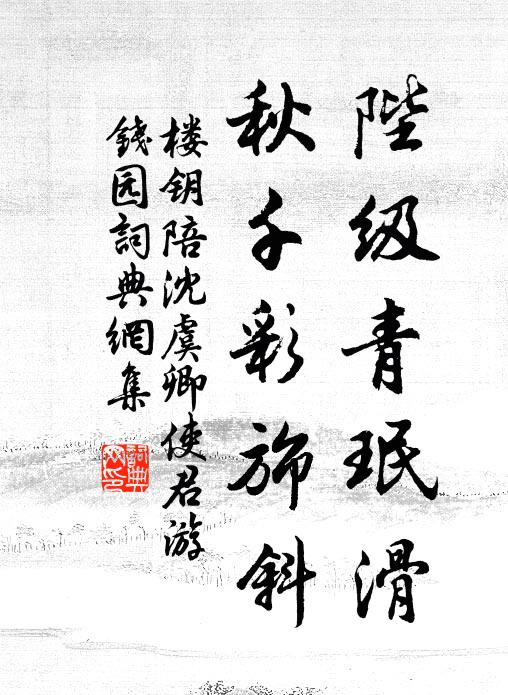 陛级青珉滑
秋千彩斾斜
楼钥陪沈虞卿使君游
錢园詞典網集
詞典
网印